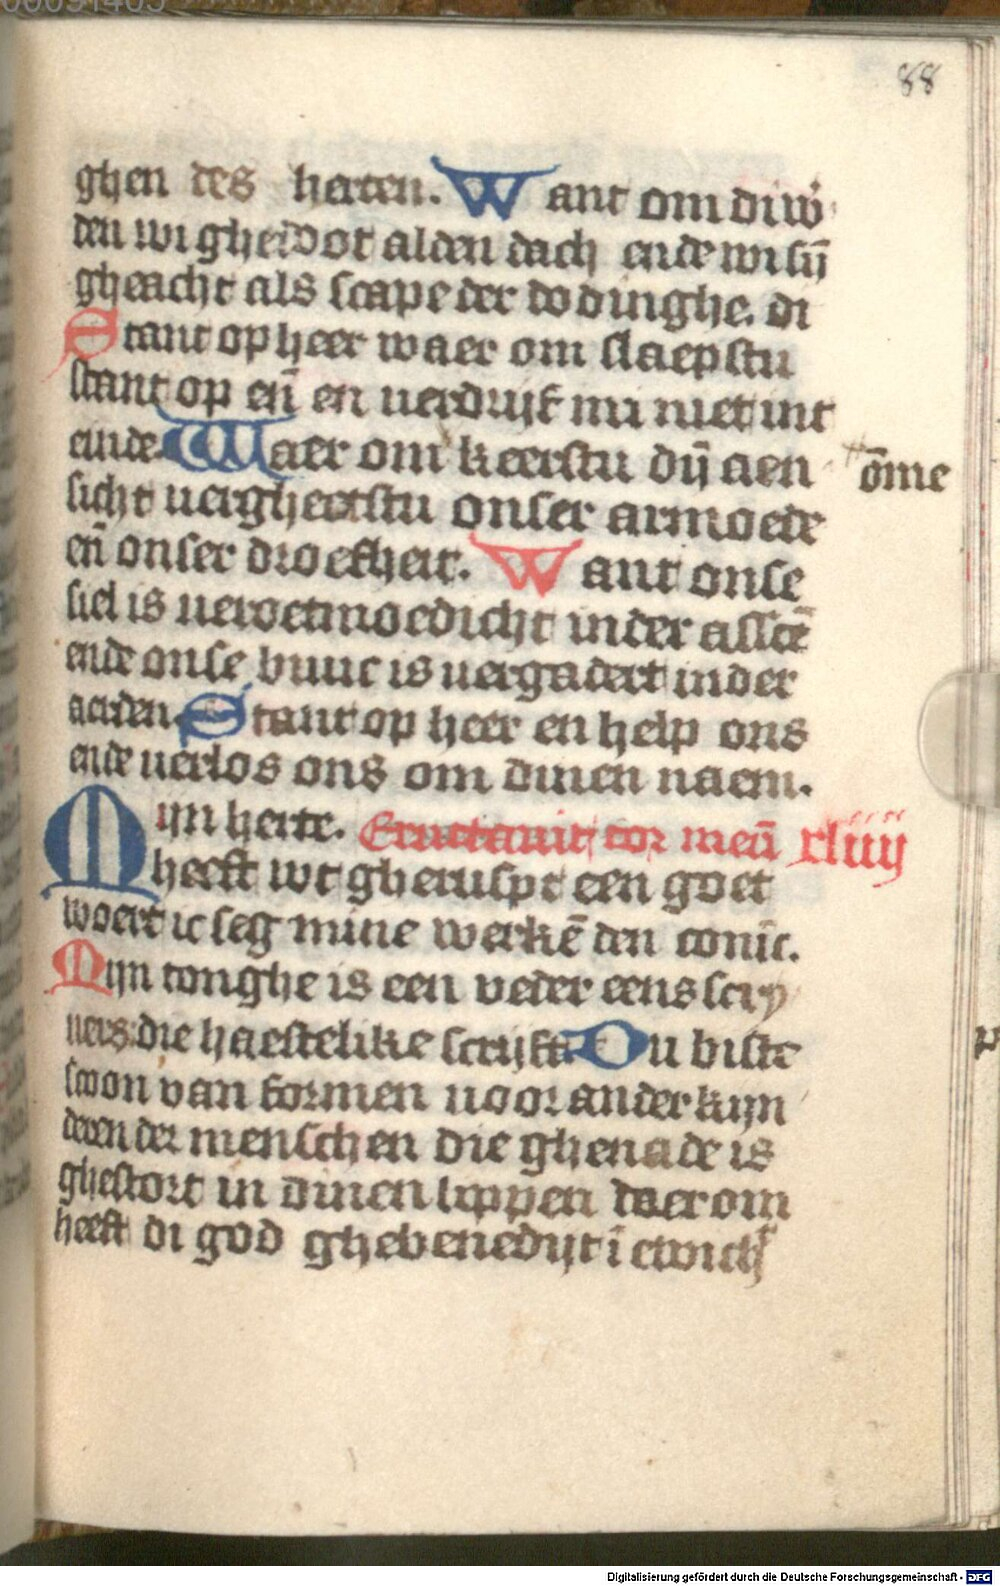 88
ghen des herten. Want om di wͦ
den wi ghedoot alden dach ende wi sijn̄
gheacht als scape der dodinghe. di
Stant op heer waer om slaepstu
stant op en̄ en uerdrijf mi niet int
einde Waer om keerstu dij aen
ōme
sicht uergheetstu onser armoede
en̄ onser droefheit. Want onse
siel is ueroetmoedicht in der asscē
ende onse buuc is uergadert in der
aerden Stant op heer en help ons
ende uerlos ons om dinen naem.
Mijn herte. Eructauit cor meū xliiij
heeft wt gheruspt een goet
woert ic seg mine werkē den coninc.
Mijn tonghe is een veder eens scry
uers die haestelike scrijft Du biste
scoon van formen uoor ander kijn
deren der menschen die ghenade is
ghestort in dinen lippen daer om
heeft di god ghebenedijt ī ewich
Digitalisierung gefördert durch die Deutsche Forschungsgemeinschaft - DFG